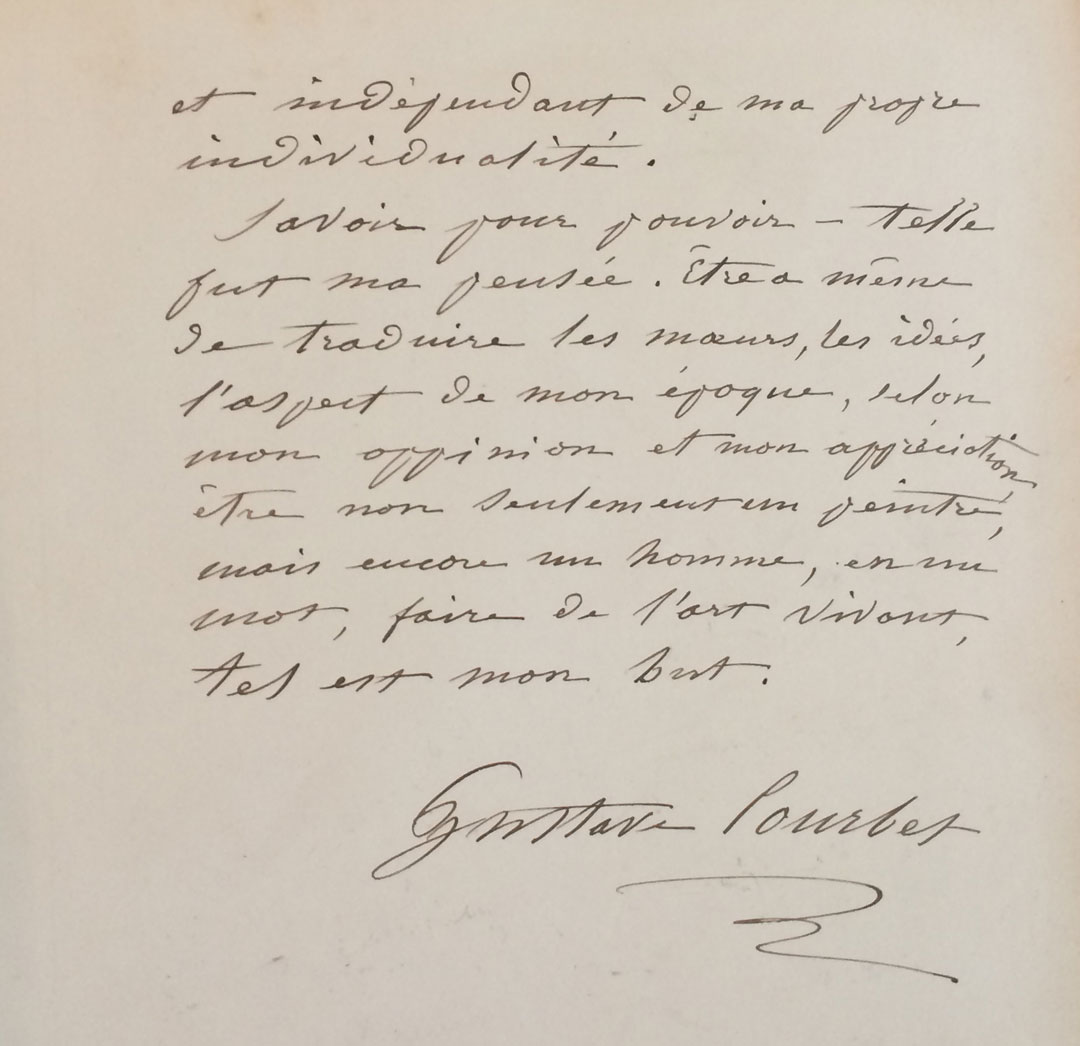 et indépendant de ma propre
individualité.
Savoir pour pouvoir – telle
fut ma pensée. Être a même
de traduire les mœurs, les idées,
l'aspect de mon époque, selon
mon oppinion et mon appréciation,
être non seulement un peintre,
mais encore un homme, en un
mot, faire de l'art vivant,
tel est mon but.
Gustave Courbet